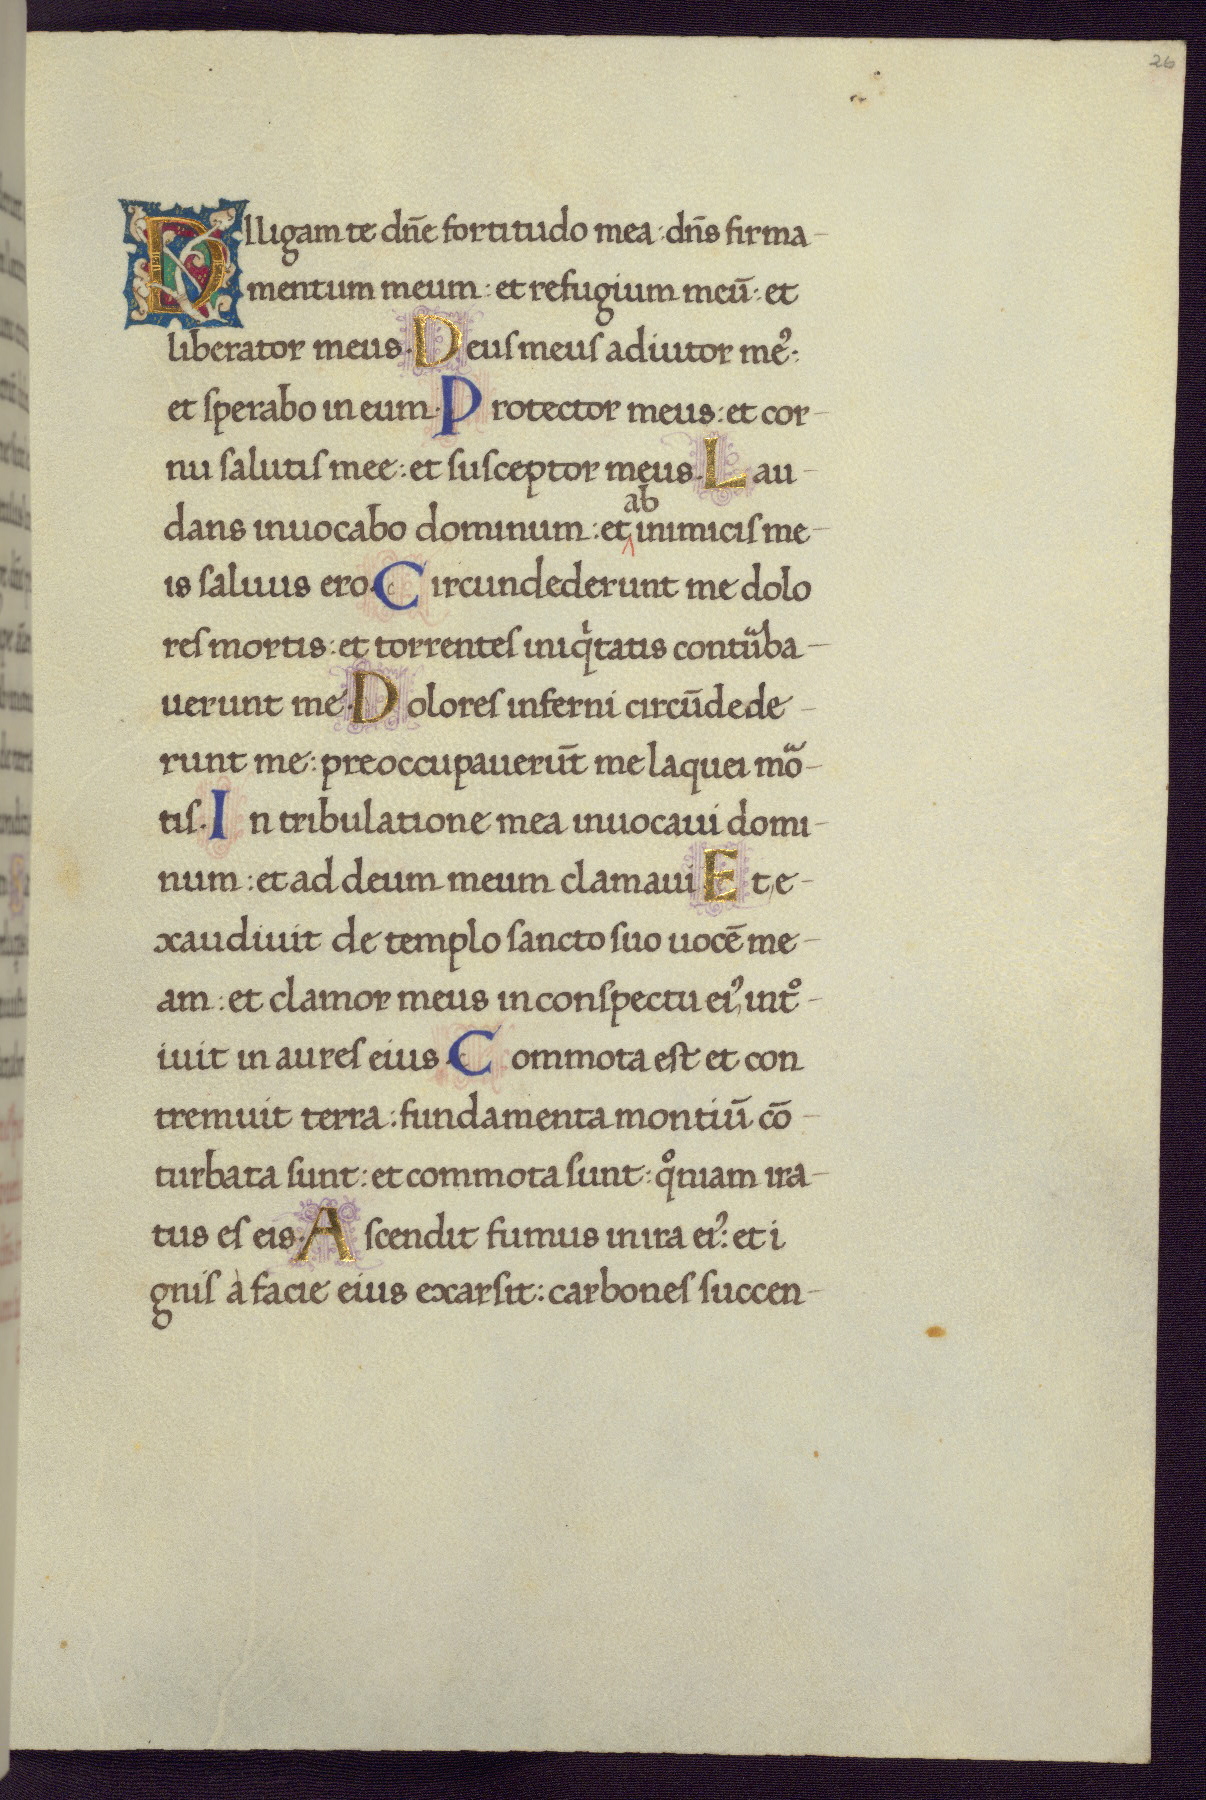 26
Dlligam te dn̄e fortitudo mea : dn̄s firma-
mentum meum : et refugium meū : et
liberator meus. Deus meus adiutor meꝰ :
et sperabo in eum. Protector meus : et cor-
nu salutis mee : et susceptor meus. Lau-
dans inuocabo dominum : et ab inimicis me-
is saluus ero. Circundederunt me dolo
res mortis : et torrentes iniqͥtatis contuᷓba-
uerunt me. Dolores inferni circūdede-
runt me : preoccupauerūt me laquei moᷓ-
tis. In tribulatione mea inuocaui domi-
num : et ad deum meum clamaui Et e-
xaudiuit de templo sancto suo uocē me-
am : et clamor meus in conspectu eiꝰ, intͦ-
iuit in aures eius. Commota est et con
tremuit terra : fundamenta montiū cō-
turbata sunt : et commota sunt : qͦniam ira-
tus es eis. Ascendit fumus in ira eiꝰ : et i
gnis à facie eius exarsit : carbones succen-